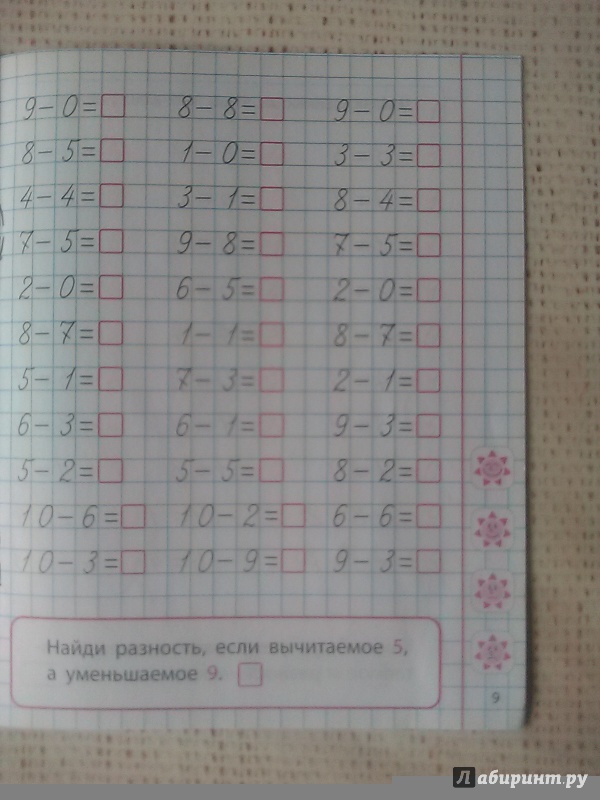 9 – 0 = 8 – 8 = 9 – 0 =
8 – 5 = 1 – 0 = 3 – 3 =
4 – 4 = 3 – 1 = 8 – 4 =
7 – 5 = 9 – 8 = 7 – 5 =
2 – 0 = 6 – 5 = 2 – 0 =
8 – 7 = 1 – 1 = 8 – 7 =
5 – 1 = 7 – 3 = 2 – 1 =
6 – 3 = 6 – 1 = 9 – 3 =
5 – 2 = 5 – 5 = 8 – 2 =
10 – 6 = 10 – 2 = 6 – 6 =
10 – 3 = 10 – 9 = 9 – 3 =
Найди разность, если вычитаемое 5,
а уменьшаемое 9.
9
Лабиринт.ру